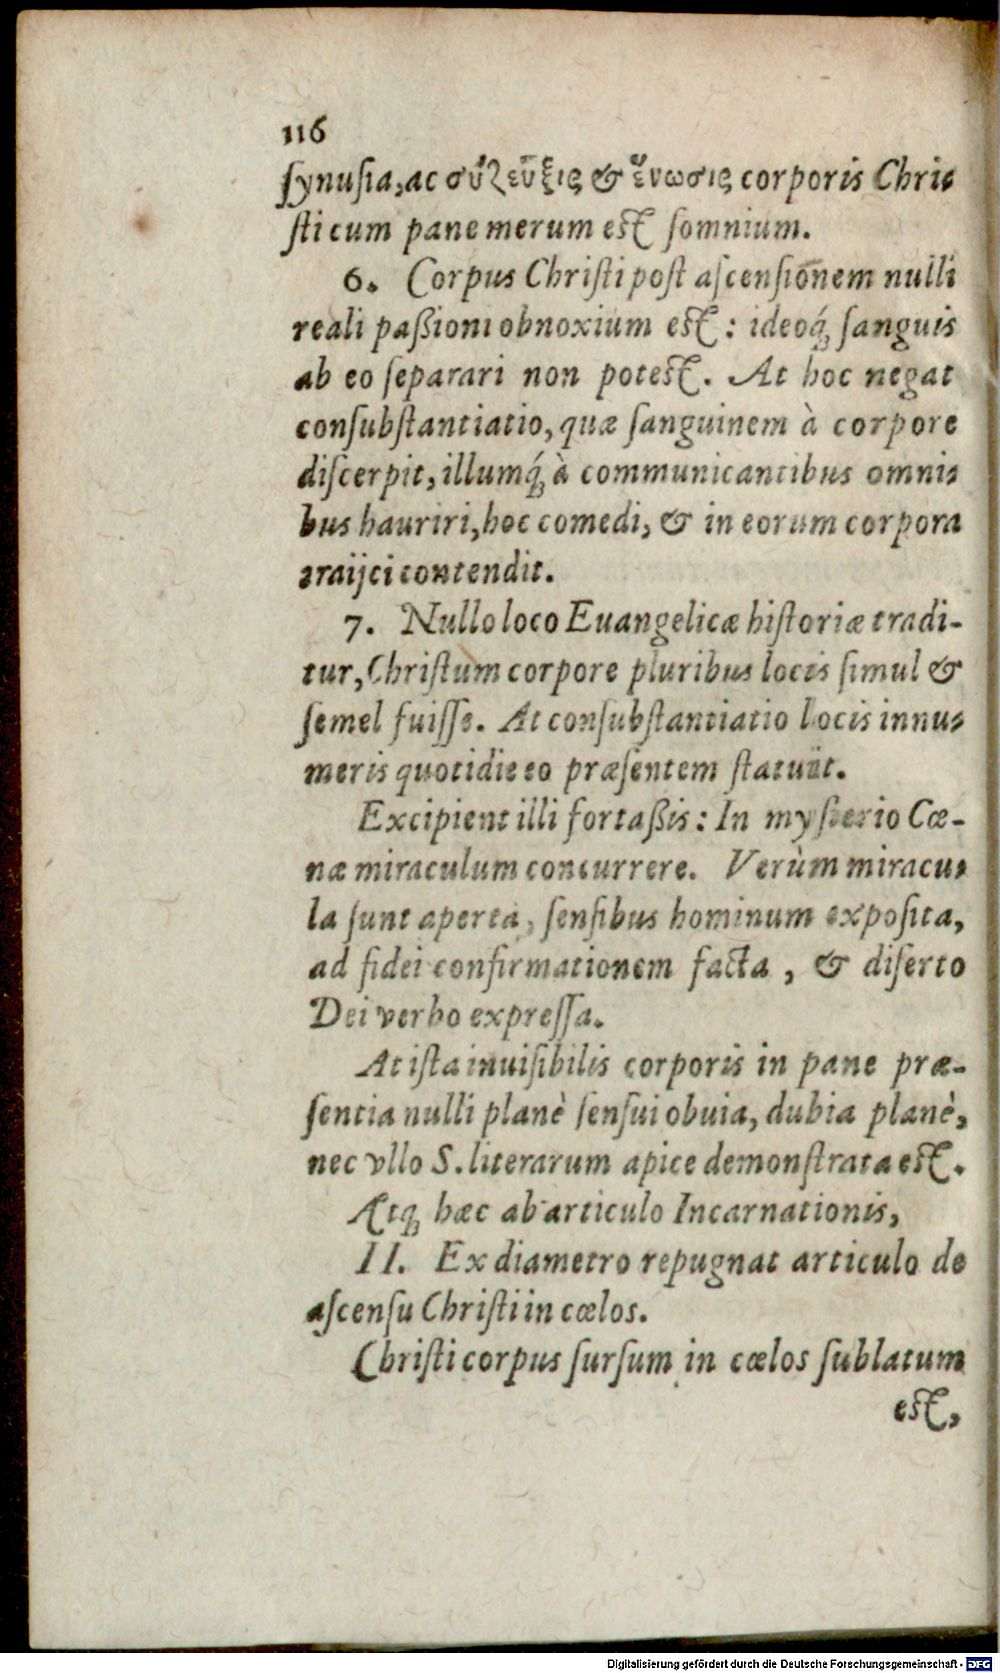 116
ſynuſia, ac σύζευξις & ἕνωσις corporis Chri-
ſti cum pane merum eſt ſomnium.
6. Corpus Chriſti poſt aſcenſionem nulli
reali paßioni obnoxium eſt: ideoq́; ſanguis
ab eo ſeparari non poteſt. At hoc negat
conſubſtantiatio, quæ ſanguinem à corpore
diſcerpit, illumq́; à communicantibus omni-
bus hauriri, hoc comedi, & in eorum corpora
traijci contendit.
7. Nullo loco Euangelicæ hiſtoriæ tradi-
tur, Chriſtum corpore pluribus locis ſimul &
ſemel fuiſſe. At conſubſtantiatio locis innu-
meris quotidie eo præſentem ſtatuit.
Excipient illi fortaßis: In myſterio Cœ-
næ miraculum concurrere. Verùm miracu-
la ſunt aperta, ſenſibus hominum expoſita,
ad fidei confirmationem facta, & diſerto
Dei verbo expreſſa.
At iſta inuiſibilis corporis in pane præ-
ſentia nulli planè ſenſui obuia, dubia planè,
nec vllo S. literarum apice demonſtrata eſt.
Atq; hæc ab articulo Incarnationis,
II. Ex diametro repugnat articulo de
aſcenſu Chriſti in cœlos.
Chriſti corpus ſurſum in cœlos ſublatum
eſt,
Digitalisierung gefördert durch die Deutsche Forschungsgemeinschaft - DFG